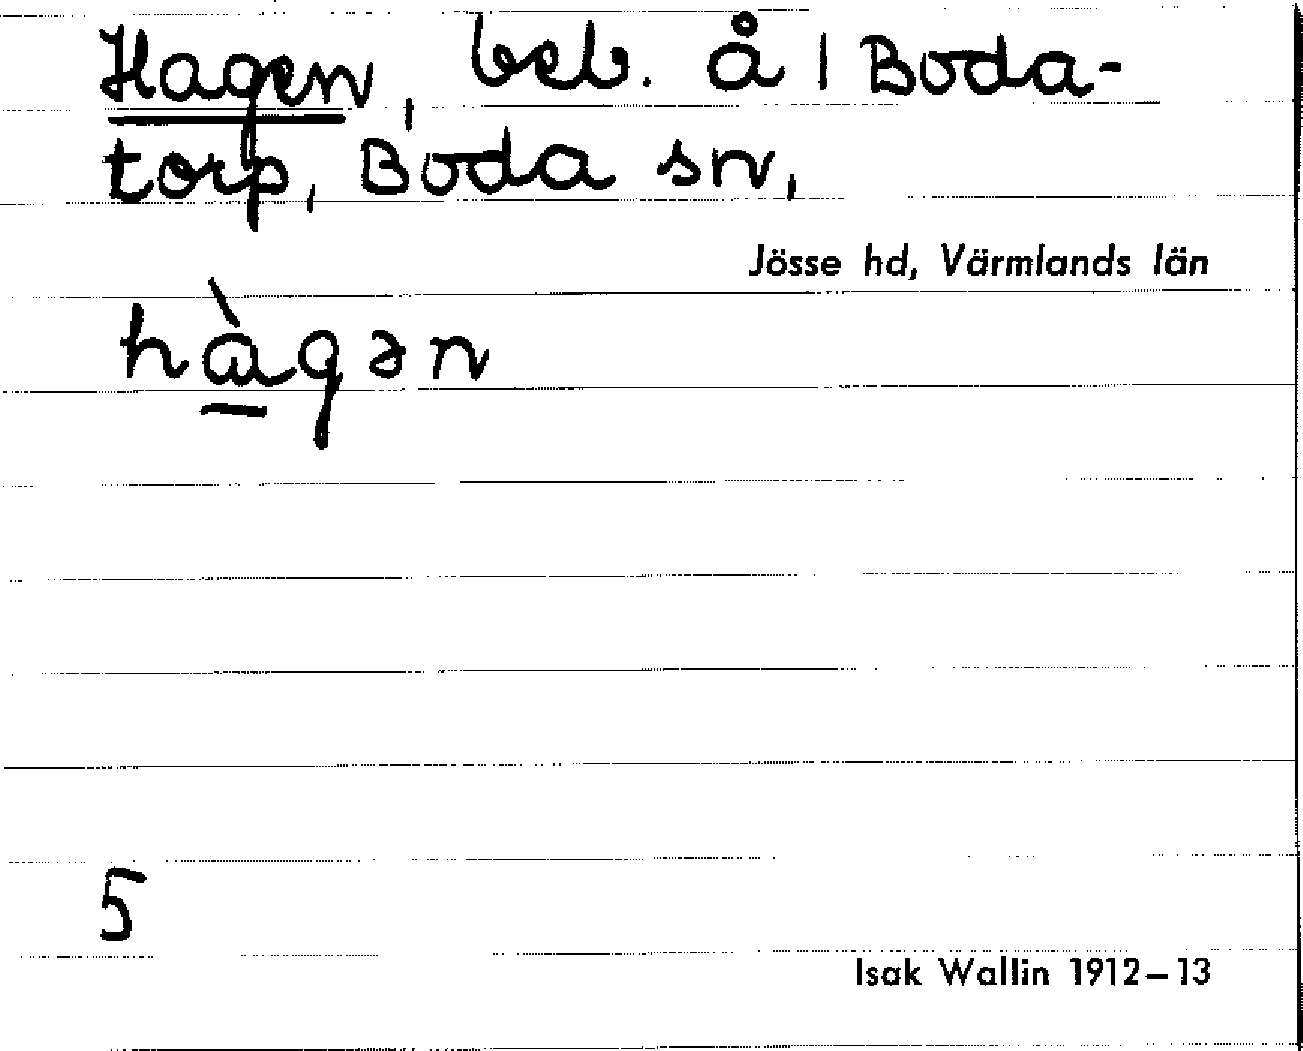 Hagen, beb. å 1 Boda-
torp, Boda sn,
Jösse hd, Värmlands län
hàgən
5
Isak Wallin 1912–13